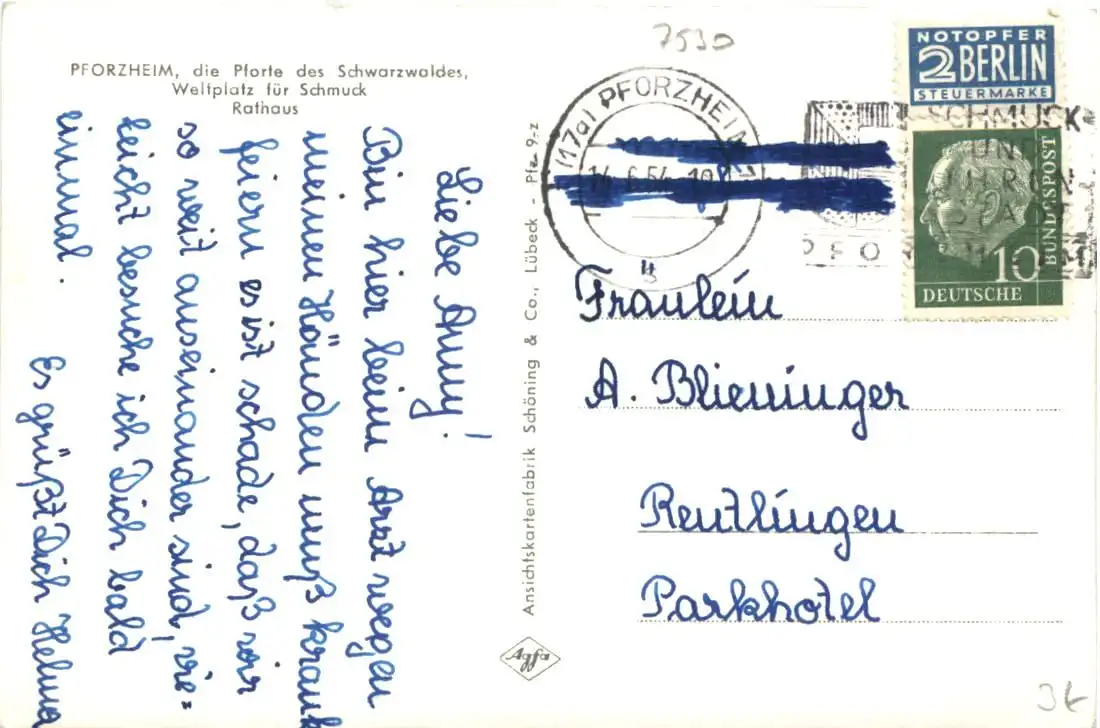 PFORZHEIM, die Pforte des Schwarzwaldes,
Weltplatz für Schmuck
Rathaus
Liebe Anny!
Bin hier beim Arzt wegen
meinen Händen muß krank
feiern es ist schade, daß wir
so weit auseinander sind, vie=
leicht besuche ich Dich bald
einmal.
Es grüßt Dich Helma
Ansichtskartenfabrik Schöning & Co., Lübeck - Pfz
Agfa
7530
(17a) PFORZHEIM
14.6.54.18
b
SCHMUCK
UND
NOTOPFER
2 BERLIN
STEUERMARKE
10
DEUTSCHE
BUNDESPOST
Fräulein
A. Blieninger
Reutlingen
Parkhotel